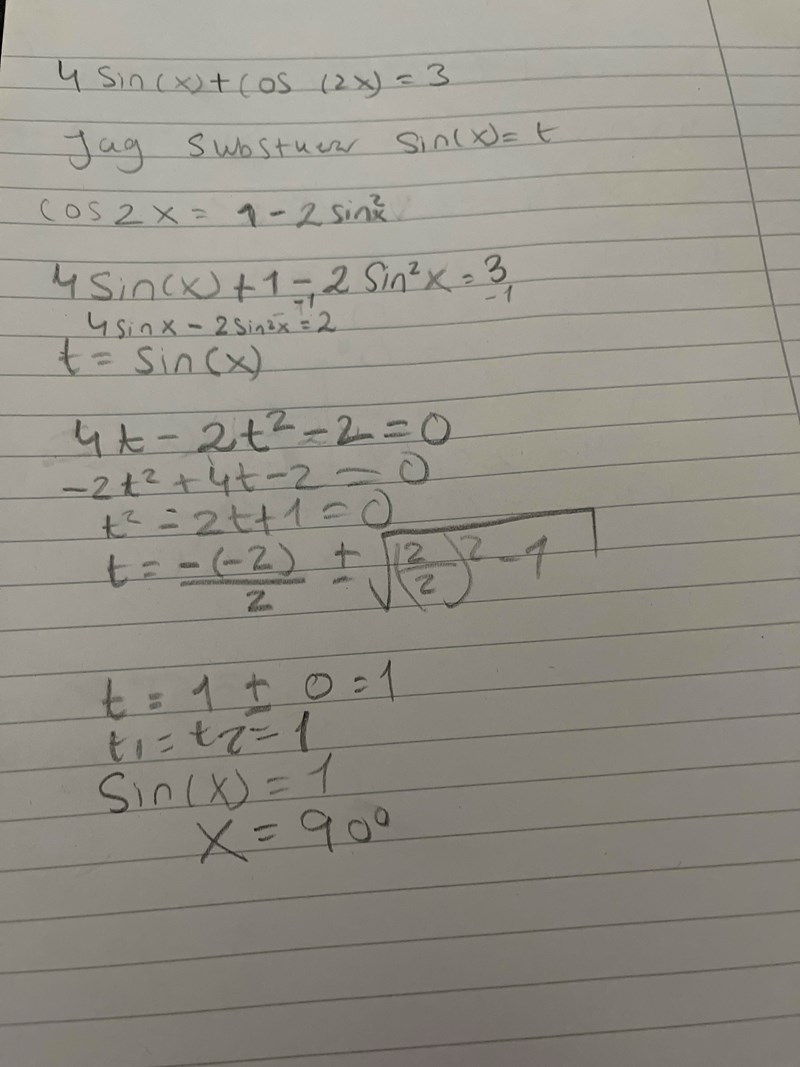 4 Sin(x)+Cos (2x) = 3
Jag substuerar Sin(x)= t
Cos2x = 1-2 sin²x
4 Sin(x)+1-2 Sin²x=3
-1 -1
4 sinx - 2 sin²x = 2
t = Sin(x)
4t - 2t² - 2 = 0
-2t² + 4t - 2 = 0
t² = 2t+1 = 0
t = -(-2)/2 ± √(2/2)² - 1
t = 1 ± 0 = 1
t₁ = t₂ = 1
Sin(x) = 1
x = 90°